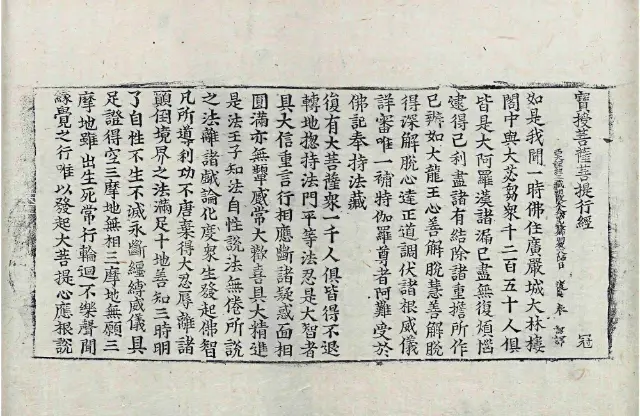 寶授菩薩菩提行經
冠
如是我聞一時佛住廣嚴城大林樓
閣中與大苾芻衆千二百五十人俱
皆是大阿羅漢諸漏已盡無復煩惱
逮得己利盡諸有結除諸重擔所作
已辨如大龍王心善解脫慧善解脫
得深解脫心達正道調伏諸根威儀
詳審唯一補特伽羅尊者阿難受於
佛記奉持法藏
復有大菩薩衆一千人俱皆得不退
轉地揔持法門平等法忍是大智者
具大信重言行相應斷諸疑惑面相
圓滿亦無顰慼常大歡喜具大精進
是法王子知法自性說法無倦所說
之法離諸戲論化度衆生發起佛智
凡所導利功不唐棄得大忍辱離諸
顛倒境界之法滿足十地善知三時明
了自性不生不滅永斷纏縛威儀具
足證得空三摩地無相三摩地無願三
摩地雖出生死常行輪迴不樂聲聞
緣覺之行唯以發起大菩提心應根說